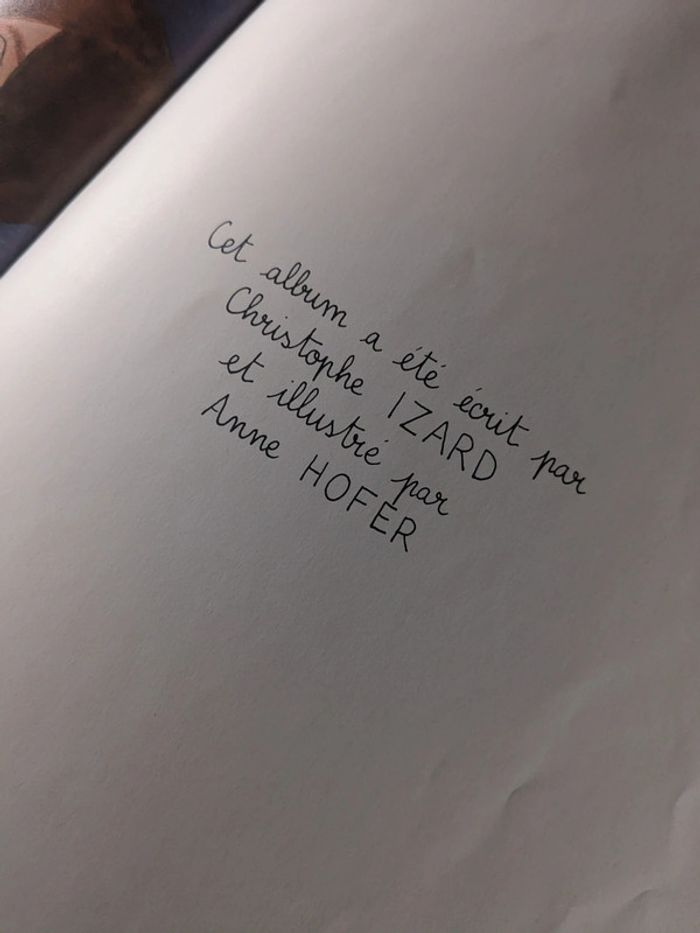 Cet album a été écrit par
Christophe IZARD
et illustré par
Anne HOFER